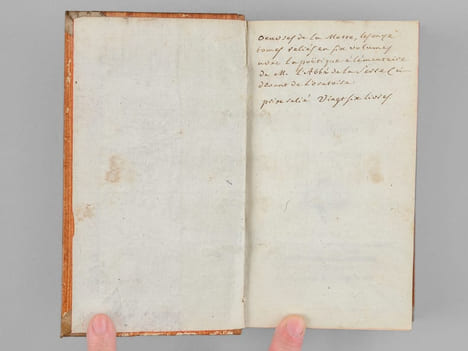 Oeuvres de la Motte, les onze
tomes reliés en six volumes
avec la poëtique élémentaire
de M. L'Abbé de la Serre Ci-
devant de l'oratoire.
prix relié Vingt six livres